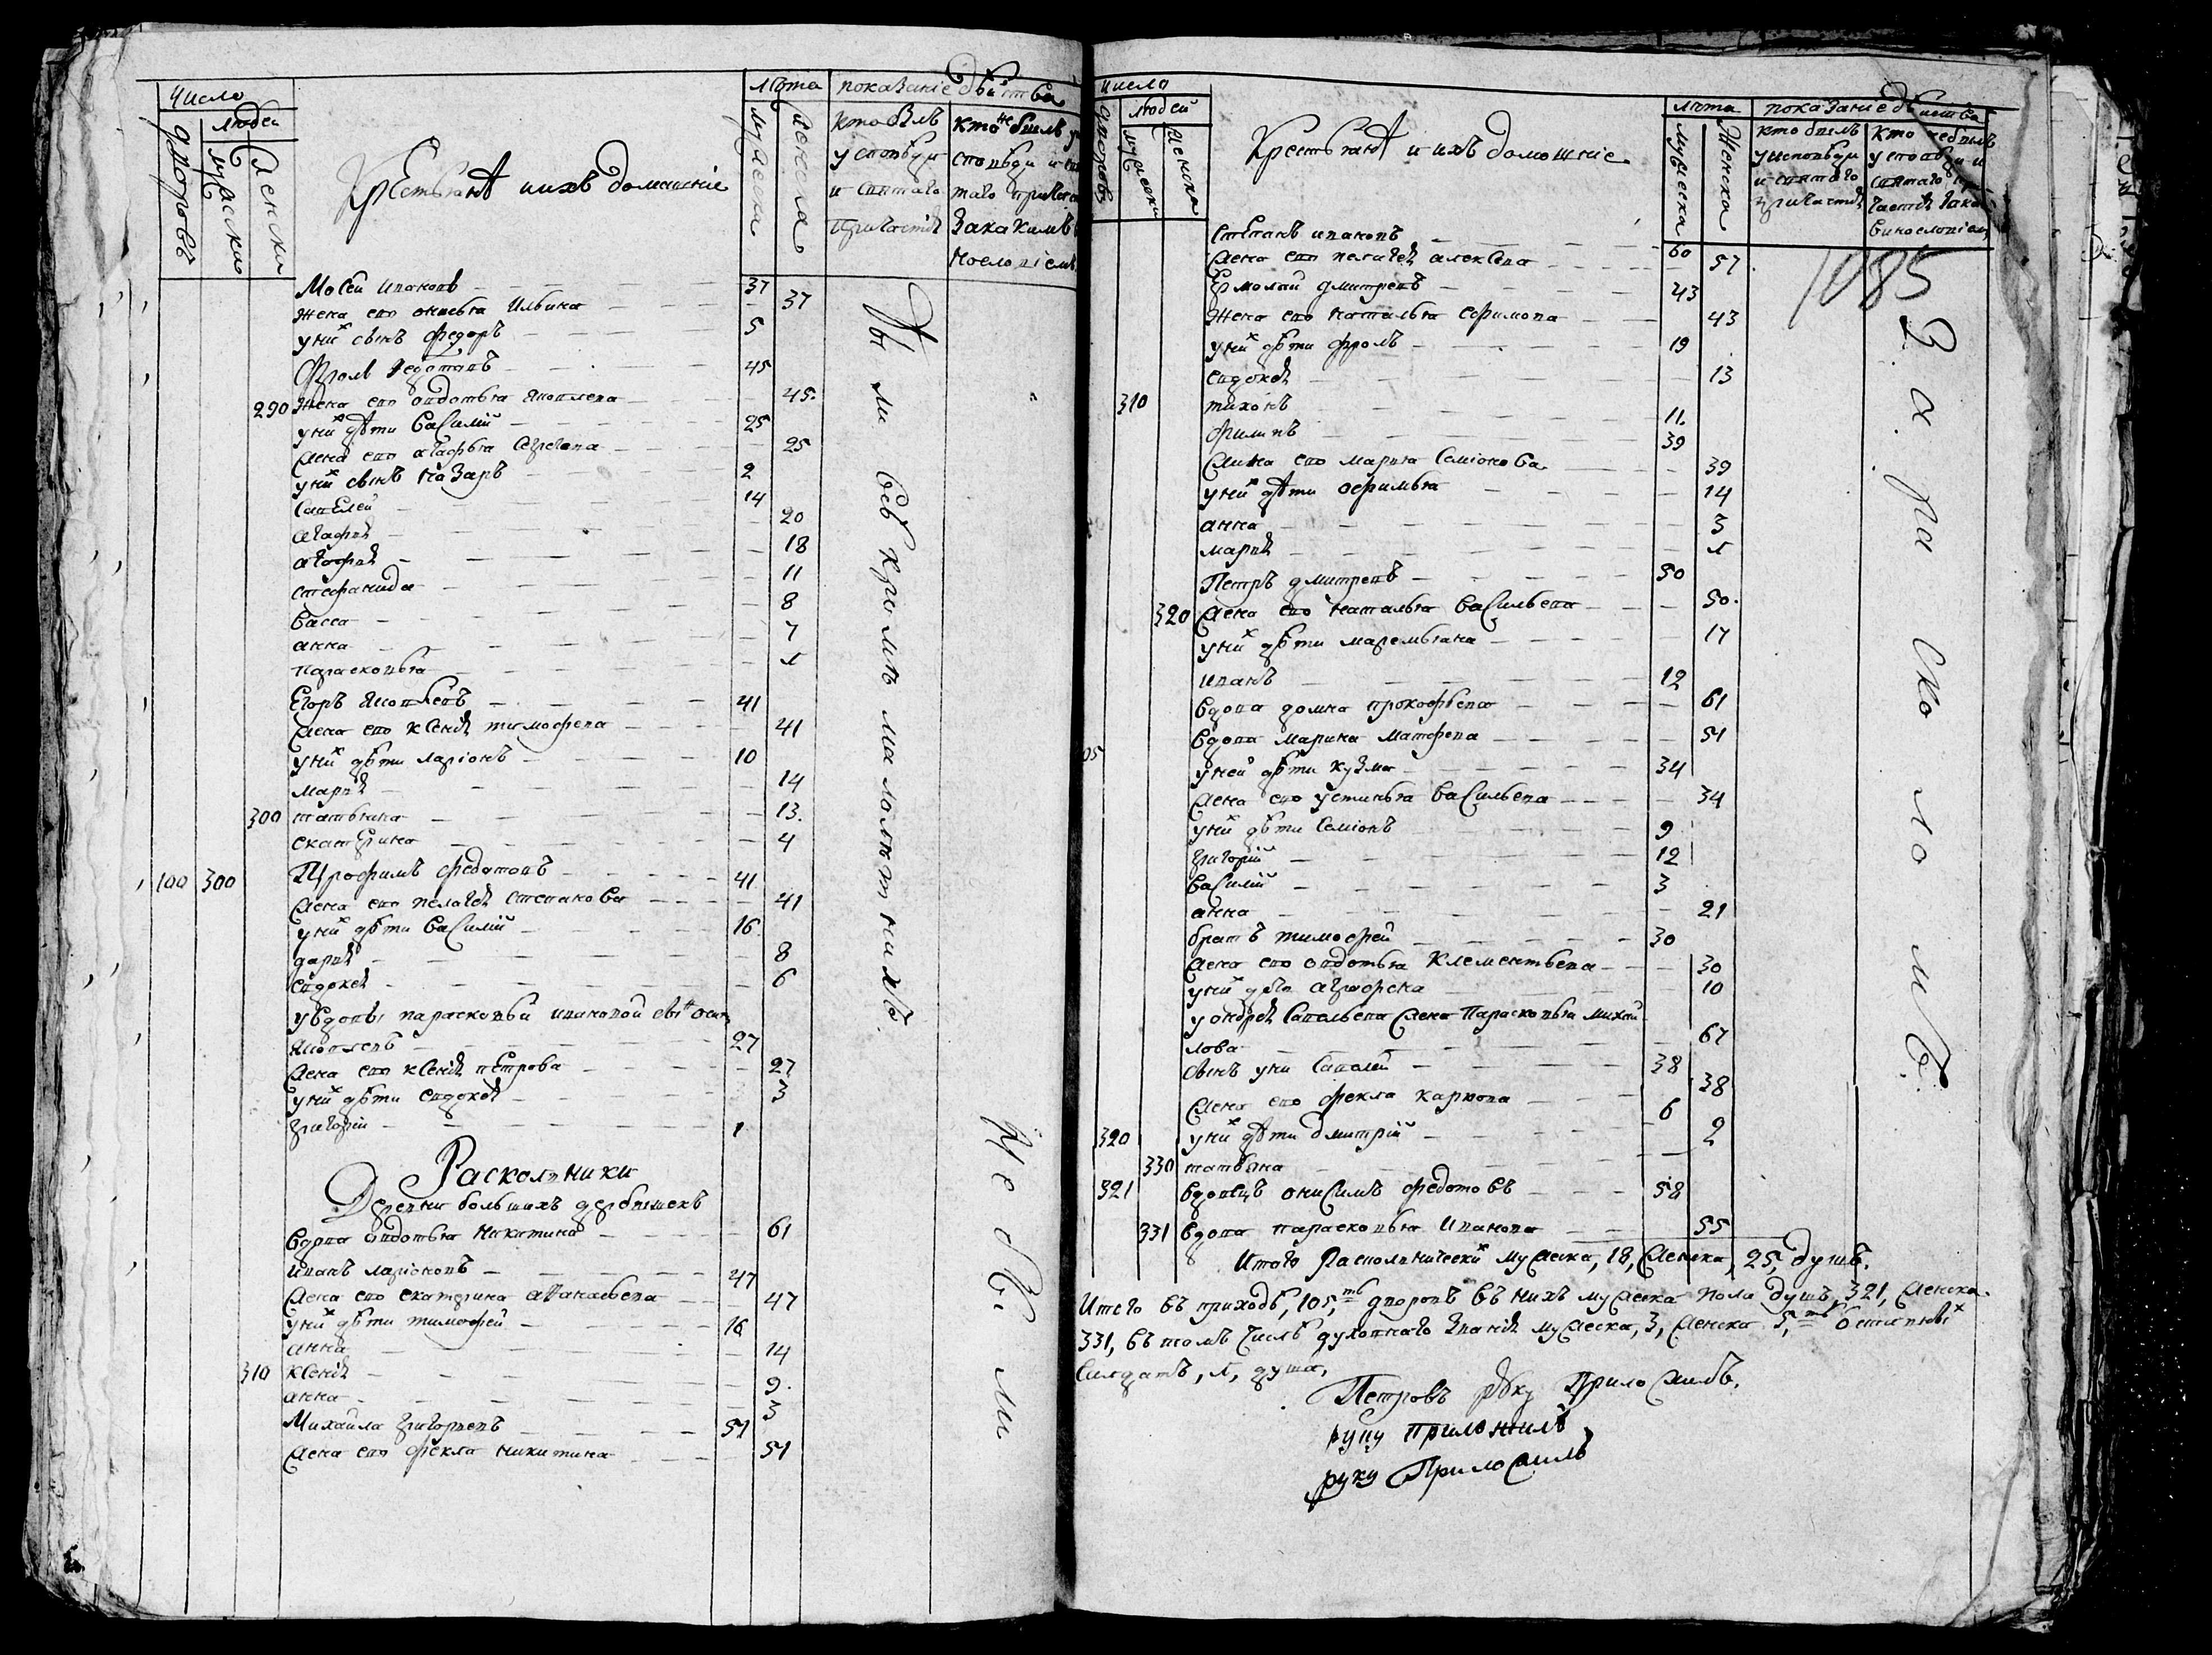 Число
людей
дворовъ
мужеска
женска
Крестьяня и ихъ домашніе
лѣта
мужеска
женска
показаніе действа
кто былъ
у споведи
и святаго
Причастія
кто не былъ у
споведи и свя
таго причас
За какимъ в
нословіемъ
Мосей Ивановъ 37
жена его анисья Ильина 37
у них сынъ федоръ 5
Фролъ Федотовъ 45
290 жена его авдотья Яковлева 45
у них дѣти Василий 25
жена его агафья Сергеева 25
у них сынъ Назаръ 2
Савелей 14
агафия 20
агафия 18
стефанида 11
Васса 8
анна 7
Парасковья 1
Егоръ Яковлевъ 41
жена его ксения тимофеева 41
у них дѣти ларіонъ 10
Мария 14
300 татьяна 13
екатерина 4
100 300 Трофимъ федотовъ 41
жена его пелагея степанова 41
у них дѣти Василий 16
дария 8
евдокея 6
у Вдовы парасковьи ивановой сынъ осип
Яковлевъ 27
жена его ксения петрова 27
у них дѣти евдокея 3
григорей 1
Раскольники
Деревни большихъ дербышекъ
Вдова авдотья Никитина 61
иванъ ларионовъ 47
жена его екатерина афанасьева 47
у них дѣти тимофей 16
анна 14
310 ксения 9
анна 3
Михайла григорьевъ 51
жена его фекла никитина 51
Были все кромѣ малолѣтнихъ.
Не были
число
людей
дворовъ
мужеска
женска
Крестьяня и ихъ домашніе
лѣта
мужеска
женска
показание действа
кто былъ
у исповеди
и святаго
причастия
кто небылъ
у споведи и
святаго при
частия зака
1085
степанъ ивановъ 60
жена его пелагея алексеева 57
Ермолай дмитревъ 43
жена его наталья ефимова 43
у них дѣти фролъ 19
евдокея 13
310 тихонъ 11
филипъ 39
жена его марья семіонова 39
у них дѣти ефимья 14
анна 3
мария 1
Петръ дмитревъ 50
320 жена его наталья васильева 50
у них дѣти маремьяна 17
иванъ 12
вдова домна прокофьева 61
вдова марина матфева 51
105 у ней дѣти кузма 34
жена его устинья васильева 34
у них дѣти семіонъ 9
григорий 12
василий 3
анна 21
братъ тимофей 30
жена его авдотья клементьева 30
у них дѣти 10
у андрея савельева жена Парасковья михай
лова 67
сынъ у ни савелей 38
жена его фекла карпова 38
320 у них дѣти дмитрій 6
330 татьяна 2
321 вдовецъ анисимъ федотовъ 58
331 вдова парасковья иванова 55
За расколомъ.
Итого Раскольническихъ мужеска, 18, женска, 25, душъ.
Итого въ приходѣ, 105, дворовъ въ нихъ мужеска пола душъ, 321, женска
331, въ томъ числѣ духовнаго звания мужеска, 3, женска 5, отставныхъ
салдатъ, 1, душа,
Петровъ руку Приложилъ.
руку приложилъ
руку Приложилъ